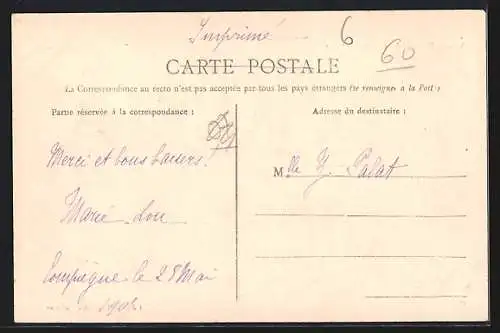 Imprimé
6
60
CARTE POSTALE
La Correspondance au recto n'est pas acceptée par tous les pays étrangers (Se renseigner à la Poste)
Partie réservée à la correspondance :
Adresse du destinataire :
Merci et bons baisers !
Mlle Y. Palat
Marie Lou
Compiègne le 28 Mai